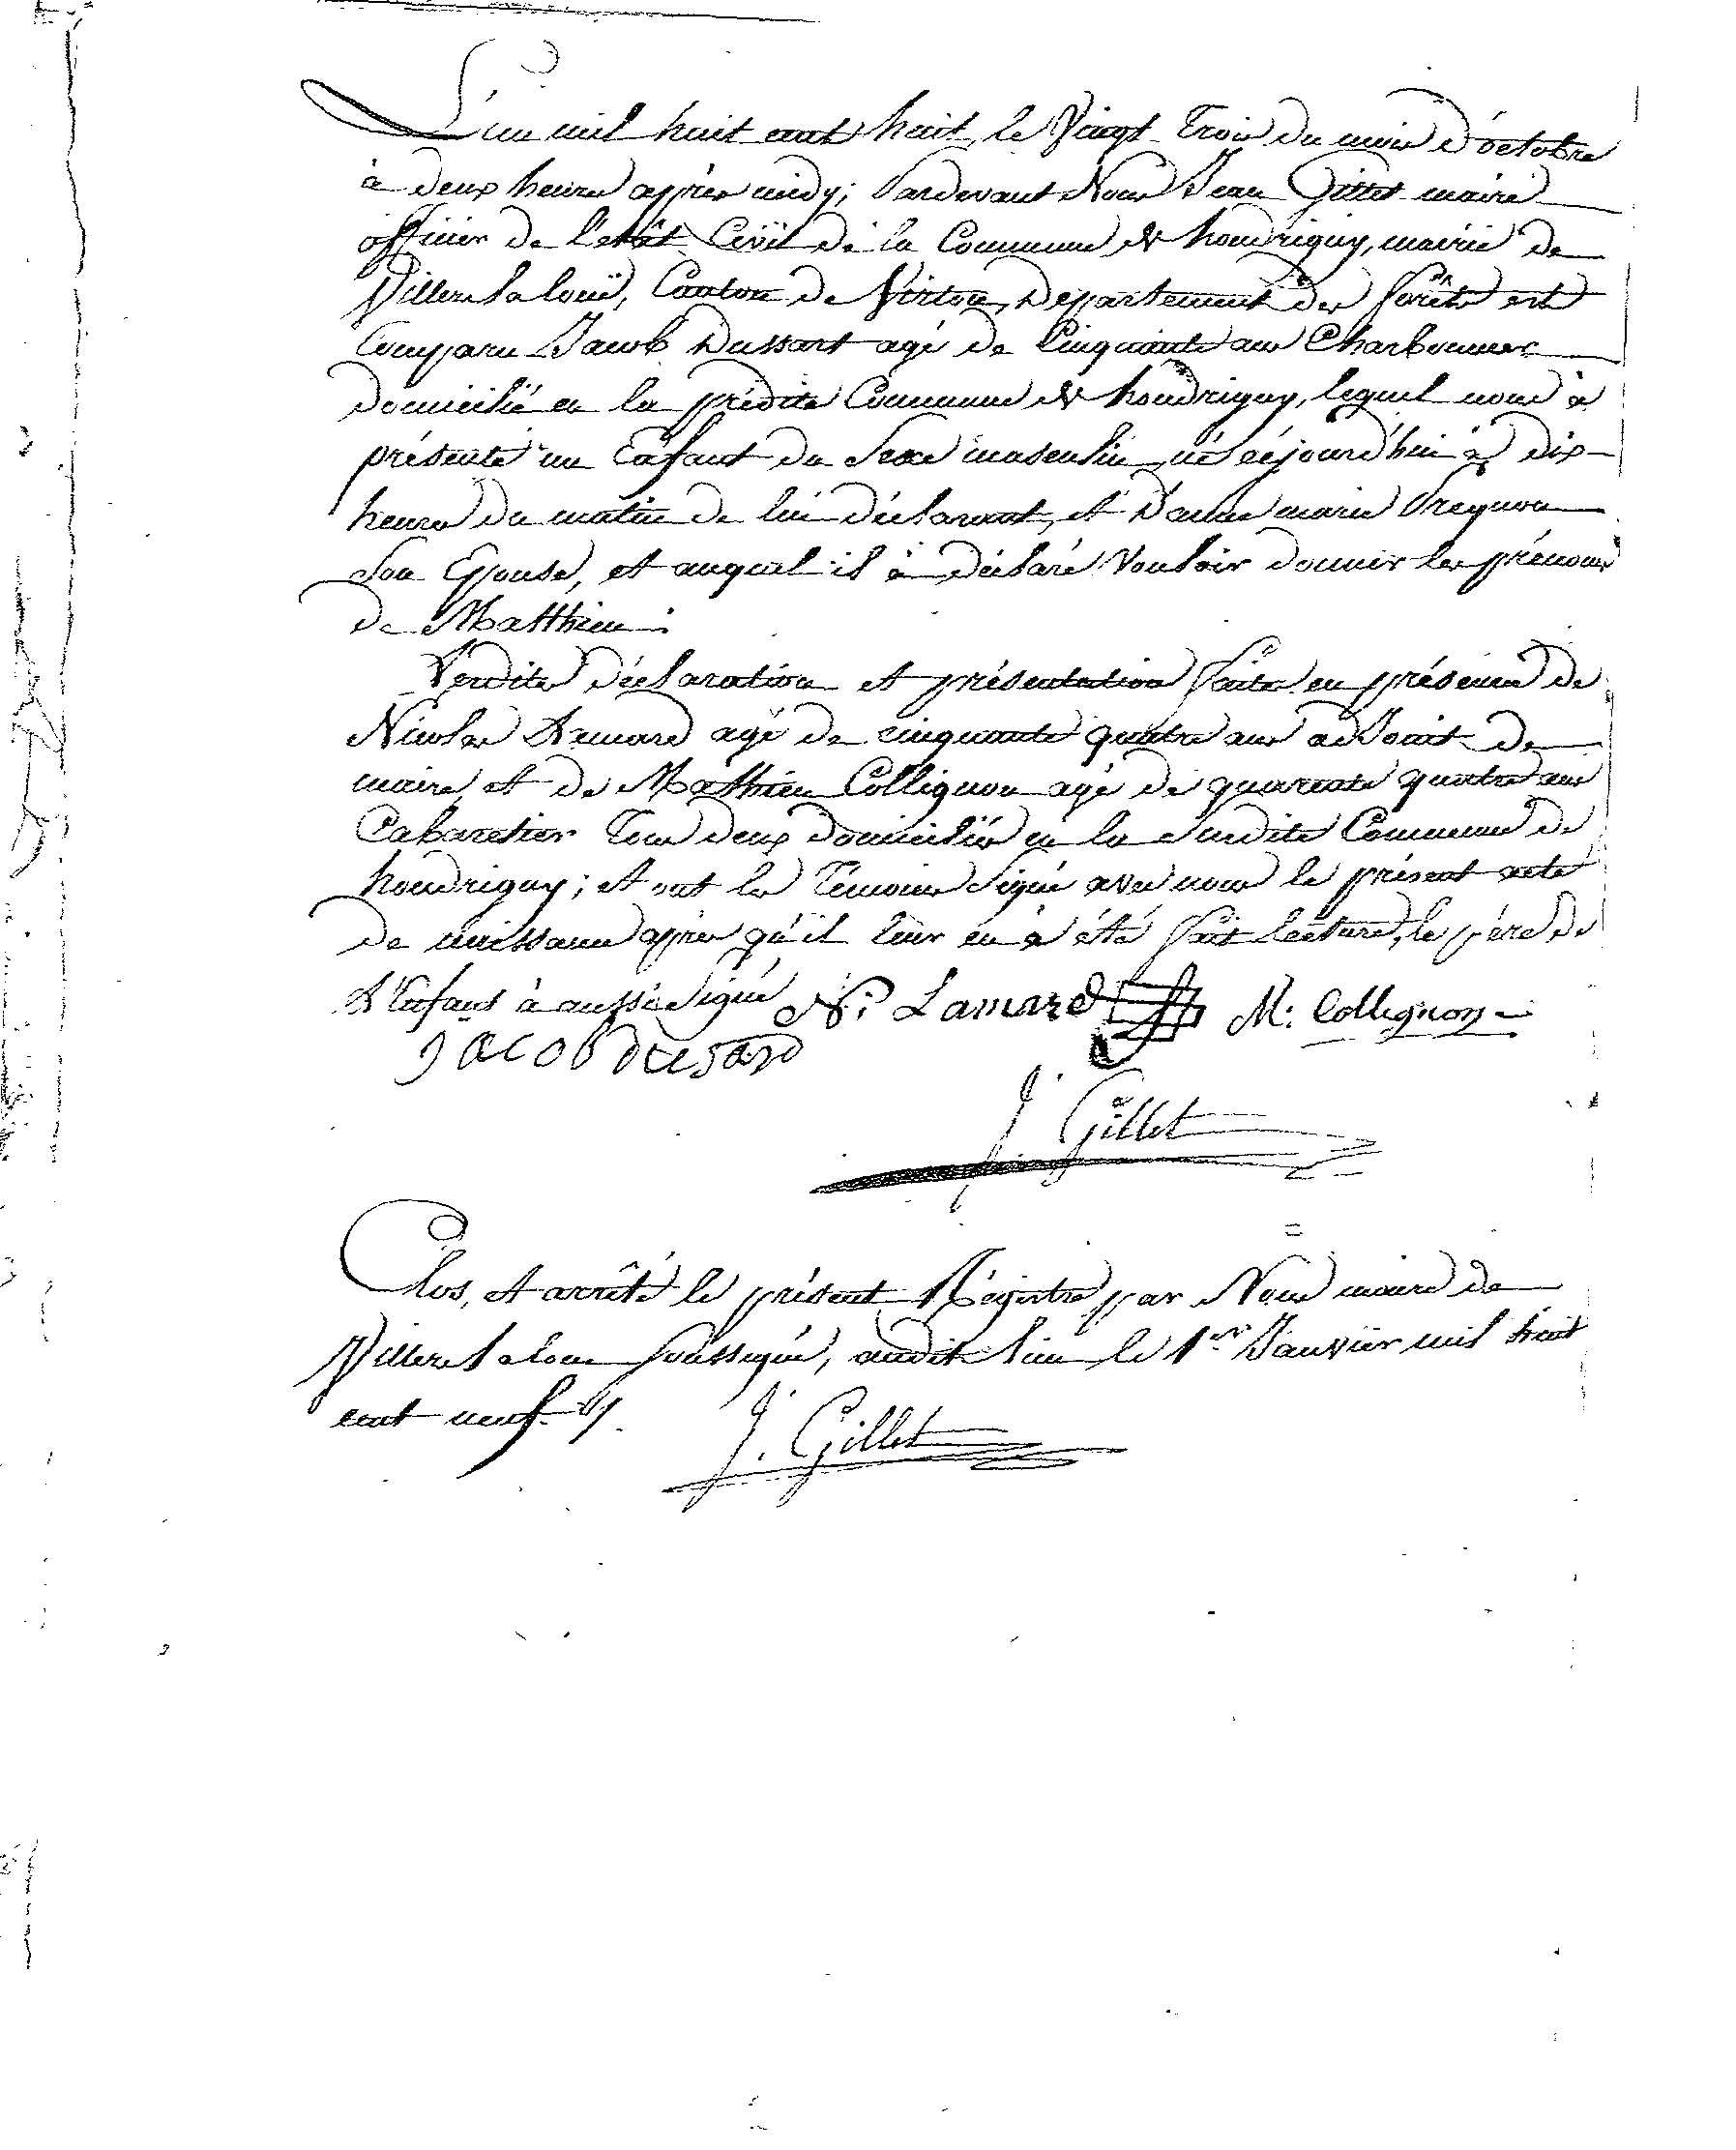 L'an mil huit cent huit, le Vingt Trois du mois d'octobre
à deux heures après midy; Pardevant Nous Jean Gillet maire
officier de l'etât Civil de la Commune d'houdrigny, mairie de
Villers la loüe, Canton de Virton, Departement des forêts est
Comparu Jacob Dussart agé de Cinquante ans Charbonnier
domicilié en la prédite Commune d'houdrigny, lequel nous à
présenté un Enfant du Sexe masculin, né cejourd'hui à dix
heures du matin de lui déclarant, et D'anne marie
Son Epouse, et auquel il à déclaré Vouloir donner les prénoms
de Matthieu.
Lesdites déclaration et présentation faites en présence de
Nicolas agé de cinquante quatre ans adjoint de
maire, et de Mathieu Collignon agé de quarente quatre ans
Cabaretier Tous deux domiciliés en la Susdite Commune de
houdrigny; et ont les Témoins Signé avec nous le présent acte
de naissance après qu'il leur en à été fait lecture, le père de
L'Enfant à aussi Signé N: Lamard M: Collignon
JACOB dusard
J. Gillet
Clos, et arrêté le présent Régistre par Nous maire de
Villers la loue soussigné, audit lieu le 1.er Janvier mil huit
cent neuf.
J. Gillet